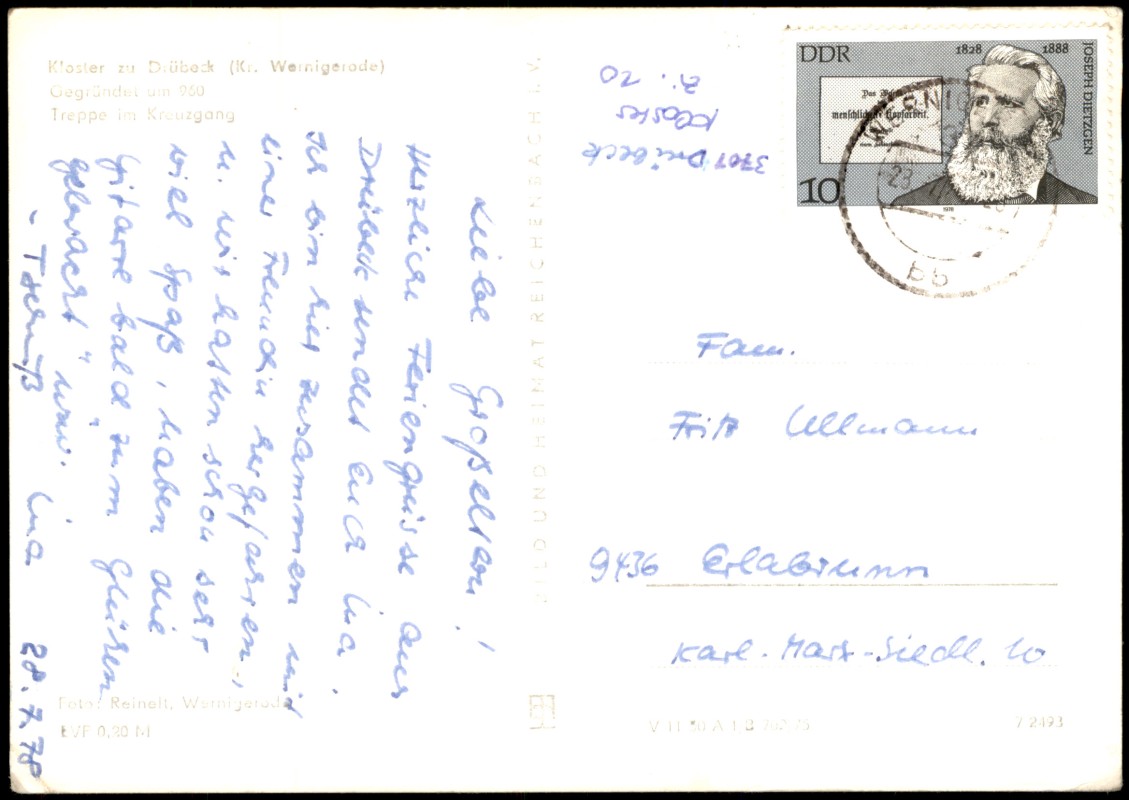 Kloster zu Drübeck (Kr. Wernigerode)
Gegründet um 960
Treppe im Kreuzgang
Liebe Großeltern!
Herzliche Feriengrüsse aus
Drübeck sendet Euch Ina.
Ich bin hier zusammen mit
einer Freundin hergefahren,
u. wir hatten schon sehr
viel Spaß, haben die
Gitarre bald zum Glühen
gebracht" usw. Ina
- Tschüß
28.7.78
Foto: Reinelt, Wernigerode
EVP 0,20 M
BILD UND HEIMAT REICHENBACH I. V.
3701 Drübeck
Kloster
Zi. 20
DDR
1828 1888
JOSEPH DIETZGEN
menschlichen Kopfarbeit.
10
1978
WERNIG
bb
Fam.
Fritz Ullmann
9436 Erlabrunn
Karl-Marx-Siedl. 10
V 11 50 A 1 B 762/75
7 2493